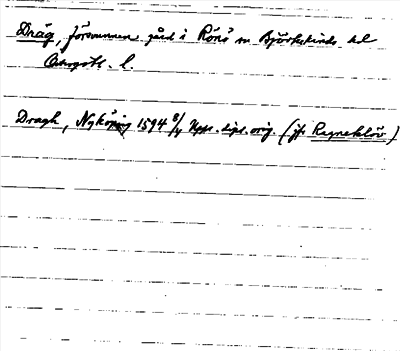 Dräg, försvunnen gård i Rönö sn Björkekinds hd
Östergötl. l.
Dragh, Nyköping 1594 8/4 Upps. dipl. orig. (jfr Ragneklöv)